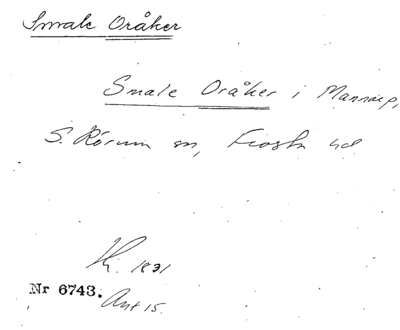 Smale Oråker
Smale Oråker i Mannarp,
S. Rörum sn, Frosta hd
1831
Nr 6743.
Ant 15.